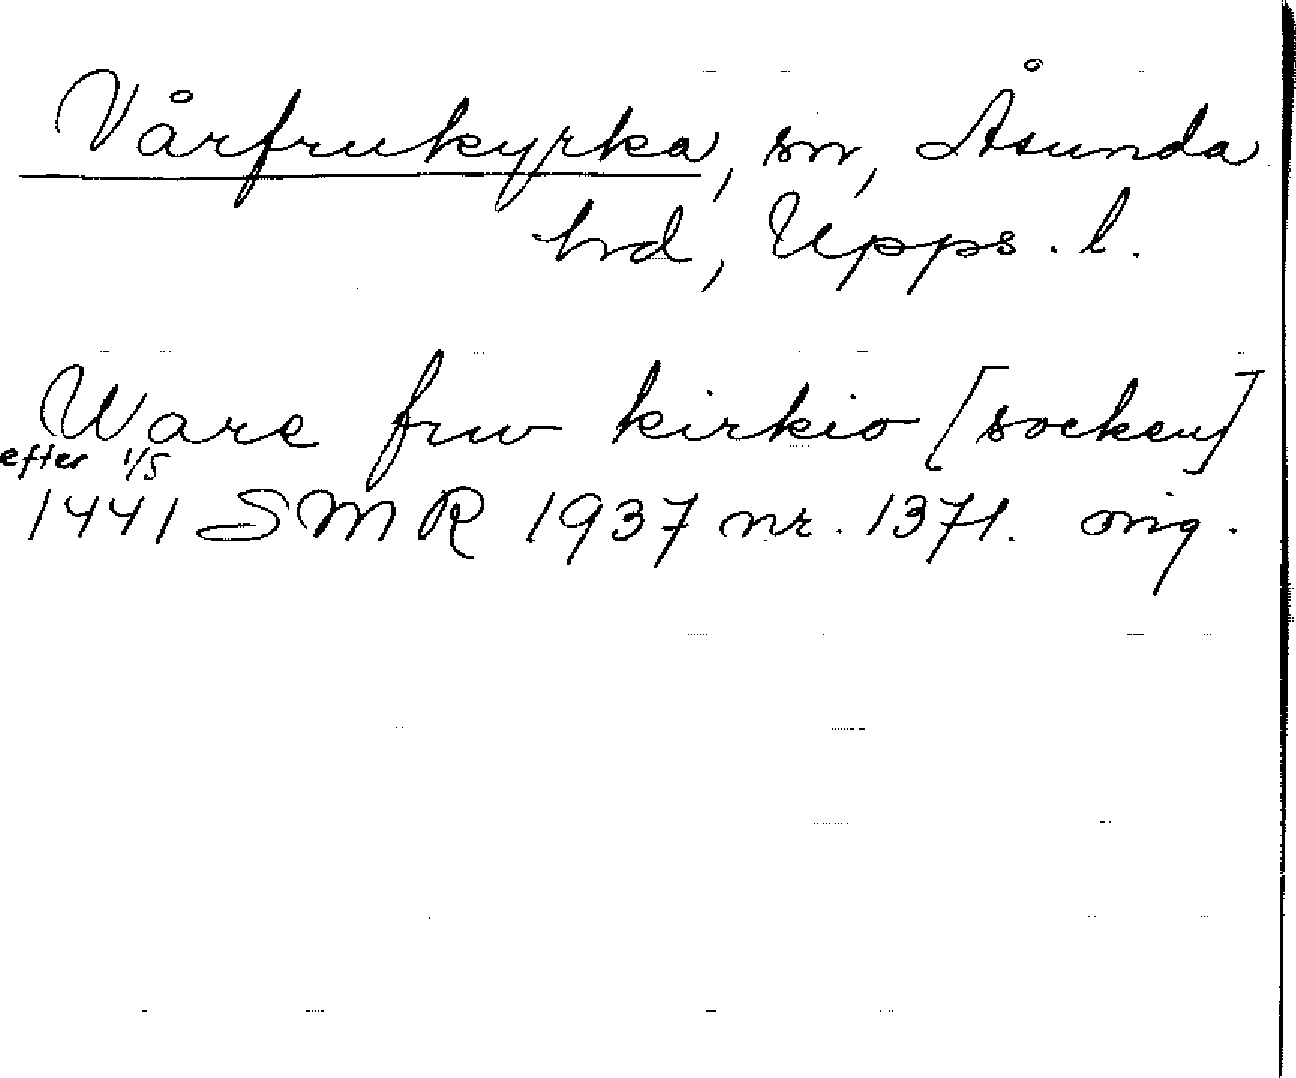 Vårfrukyrka, sn, Åsunda
hd, Upps. l.
Ware frw kirkio [socken]
efter 1/5
1441 SMR 1937 nr. 1371. orig.